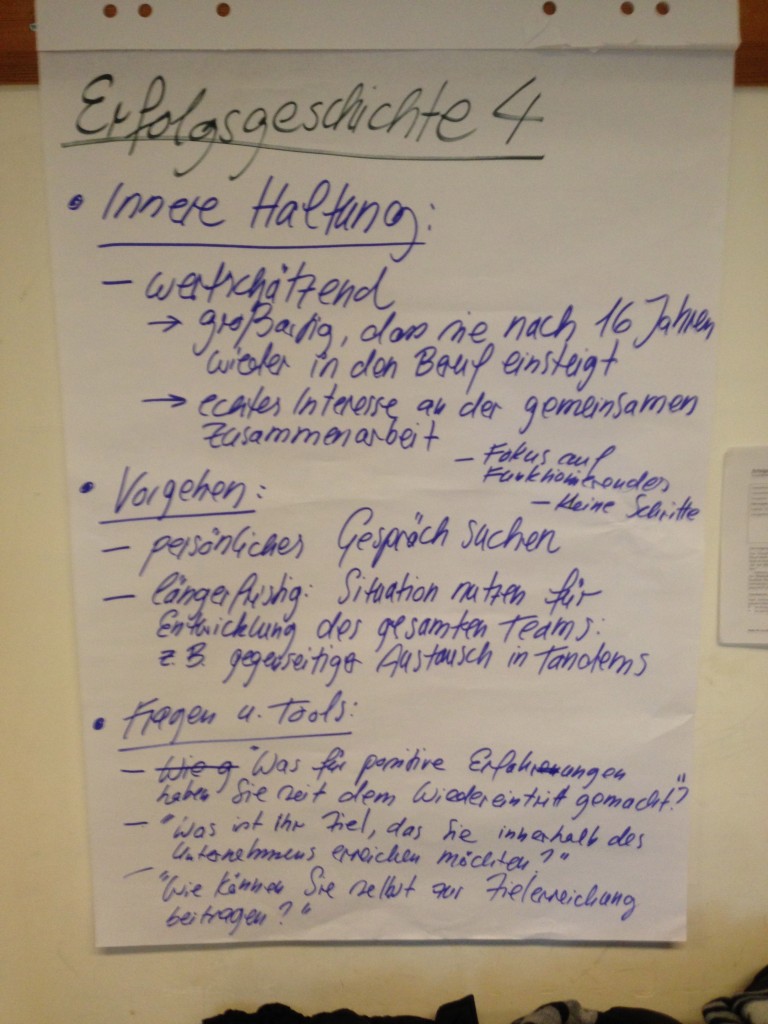 Erfolgsgeschichte 4
• Innere Haltung:
– wertschätzend
→ großartig, dass sie nach 16 Jahren
wieder in den Beruf einsteigt
→ echtes Interesse an der gemeinsamen
Zusammenarbeit
– Fokus auf
Funktionierendes
– kleine Schritte
• Vorgehen:
– persönliches Gespräch suchen
– längerfristig: Situation nutzen für
Entwicklung des gesamten Teams:
z.B. gegenseitiger Austausch in Tandems
• Fragen u. Tools:
– Wie g "Was für positive Erfahrungen
haben Sie seit dem Wiedereintritt gemacht?"
– "Was ist Ihr Ziel, das Sie innerhalb des
Unternehmens erreichen möchten?"
– "Wie können Sie selbst zur Zielerreichung
beitragen?"